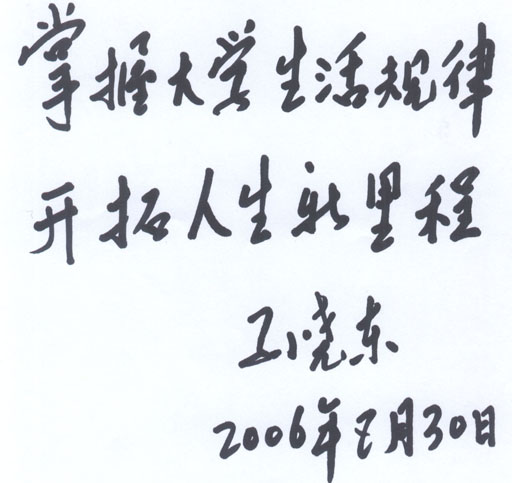 掌握大学生活规律
开拓人生新里程
晓东
2006年8月30日